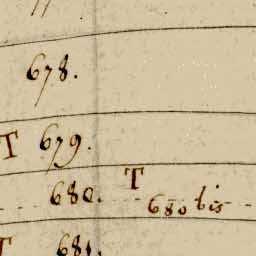 678.
T 679.
680. T 680 bis
T 681.